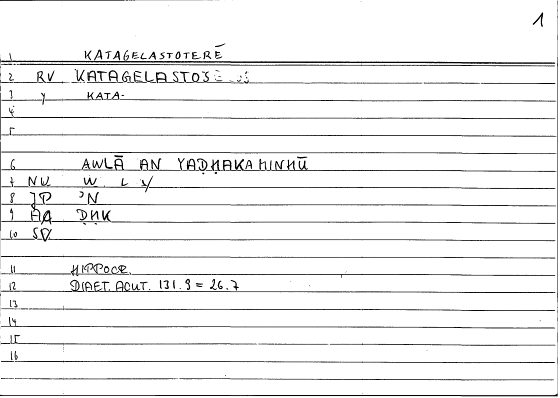 1
1 KATAGELASTOTERĒ
2 RV KATAGELASTOS
3 y KATA-
4
5
6 AWLĀ AN YAḌḤAKA MINHŪ
7 NU W L Y
8 JP ʾN
9 AA ḌḤK
10 SV
11 HIPPOCR.
12 DIAET. ACUT. 131.9 = 26.7
13
14
15
16